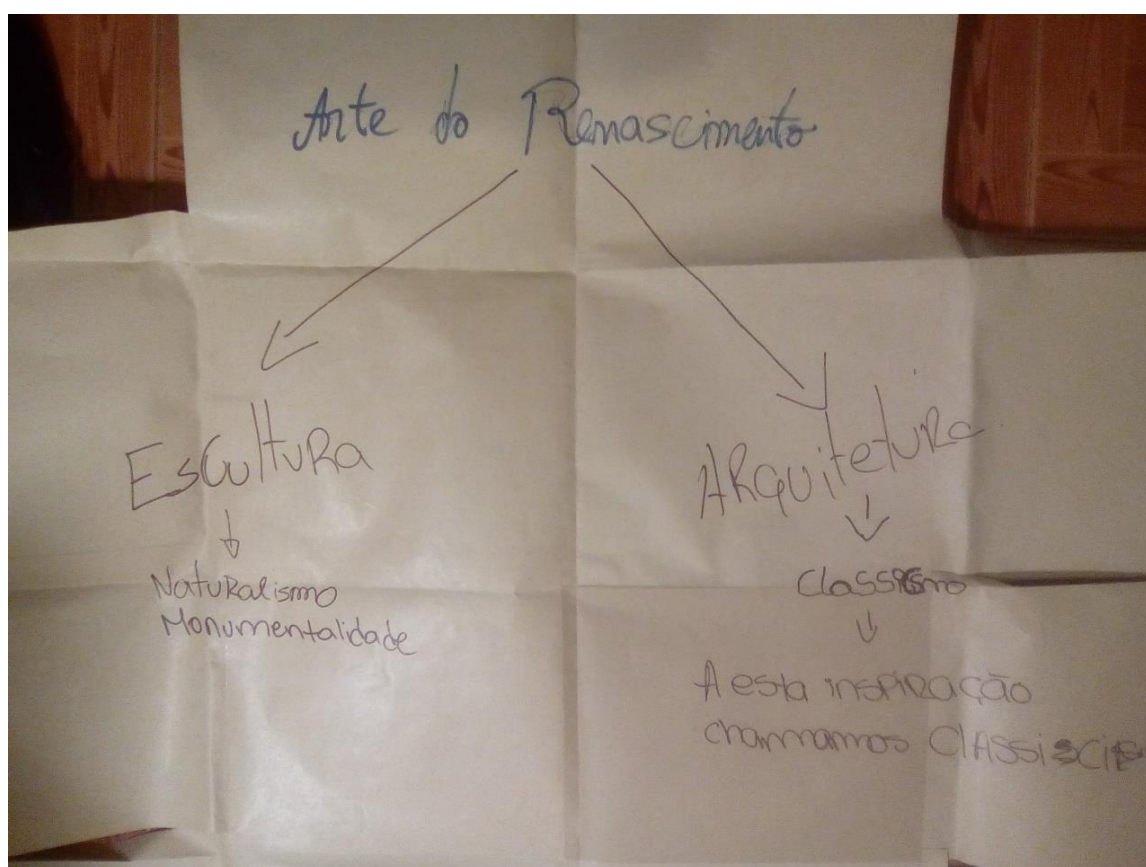 Arte do Renascimento
Escultura
Naturalismo
Monumentalidade
Arquitetura
A esta inspiração
chamamos